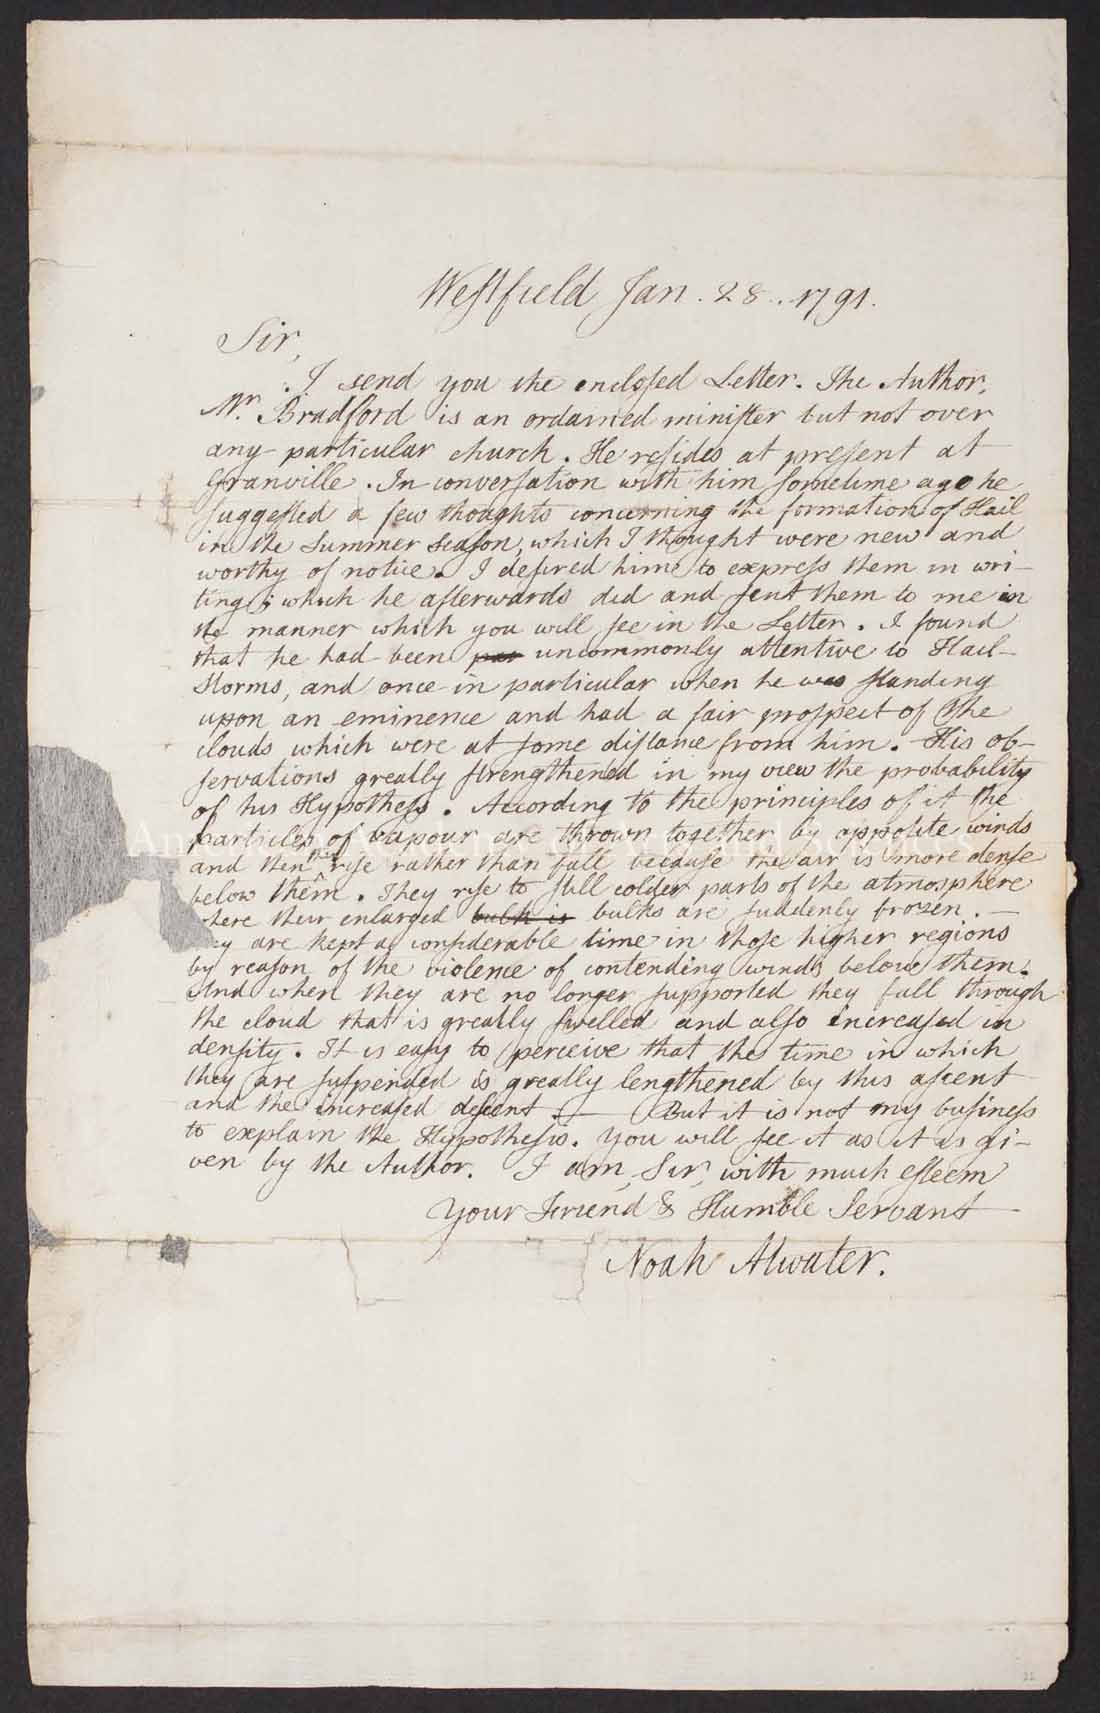 Westfield Jan. 28. 1791.
Sir,
I send you the enclosed Letter. The Author,
Mr. Bradford is an ordained minister but not over
any particular church. He resides at present at
Granville. In conversation with him sometime ago he
suggested a few thoughts concerning the formation of Hail
in the Summer Season, which I thought were new and
worthy of notice. I desired him to express them in wri-
ting; which he afterwards did and sent them to me in
the manner which you will see in the Letter. I found
that he had been uncommonly attentive to Hail-
Storms, and once in particular when he was standing
upon an eminence and had a fair prospect of the
clouds which were at some distance from him. His ob-
servations greatly strengthened in my view the probability
of his Hypothesis. According to the principles of it the
particles of vapour are thrown together by opposite winds
and then they rise rather than fall because the air is more dense
below them. They rise to still colder parts of the atmosphere
where their enlarged bulk is bulks are suddenly frozen. —
ey are kept a considerable time in those higher regions
by reason of the violence of contending winds below them.
And when they are no longer supported they fall through
the cloud that is greatly swelled and also increased in
density. It is easy to perceive that the time in which
they are suspended is greatly lengthened by this ascent
and the increased descent. — But it is not my business
to explain the Hypothesis. You will see it as it is gi-
ven by the Author. I am, Sir, with much esteem
Your Friend & Humble Servant
Noah Atwater.